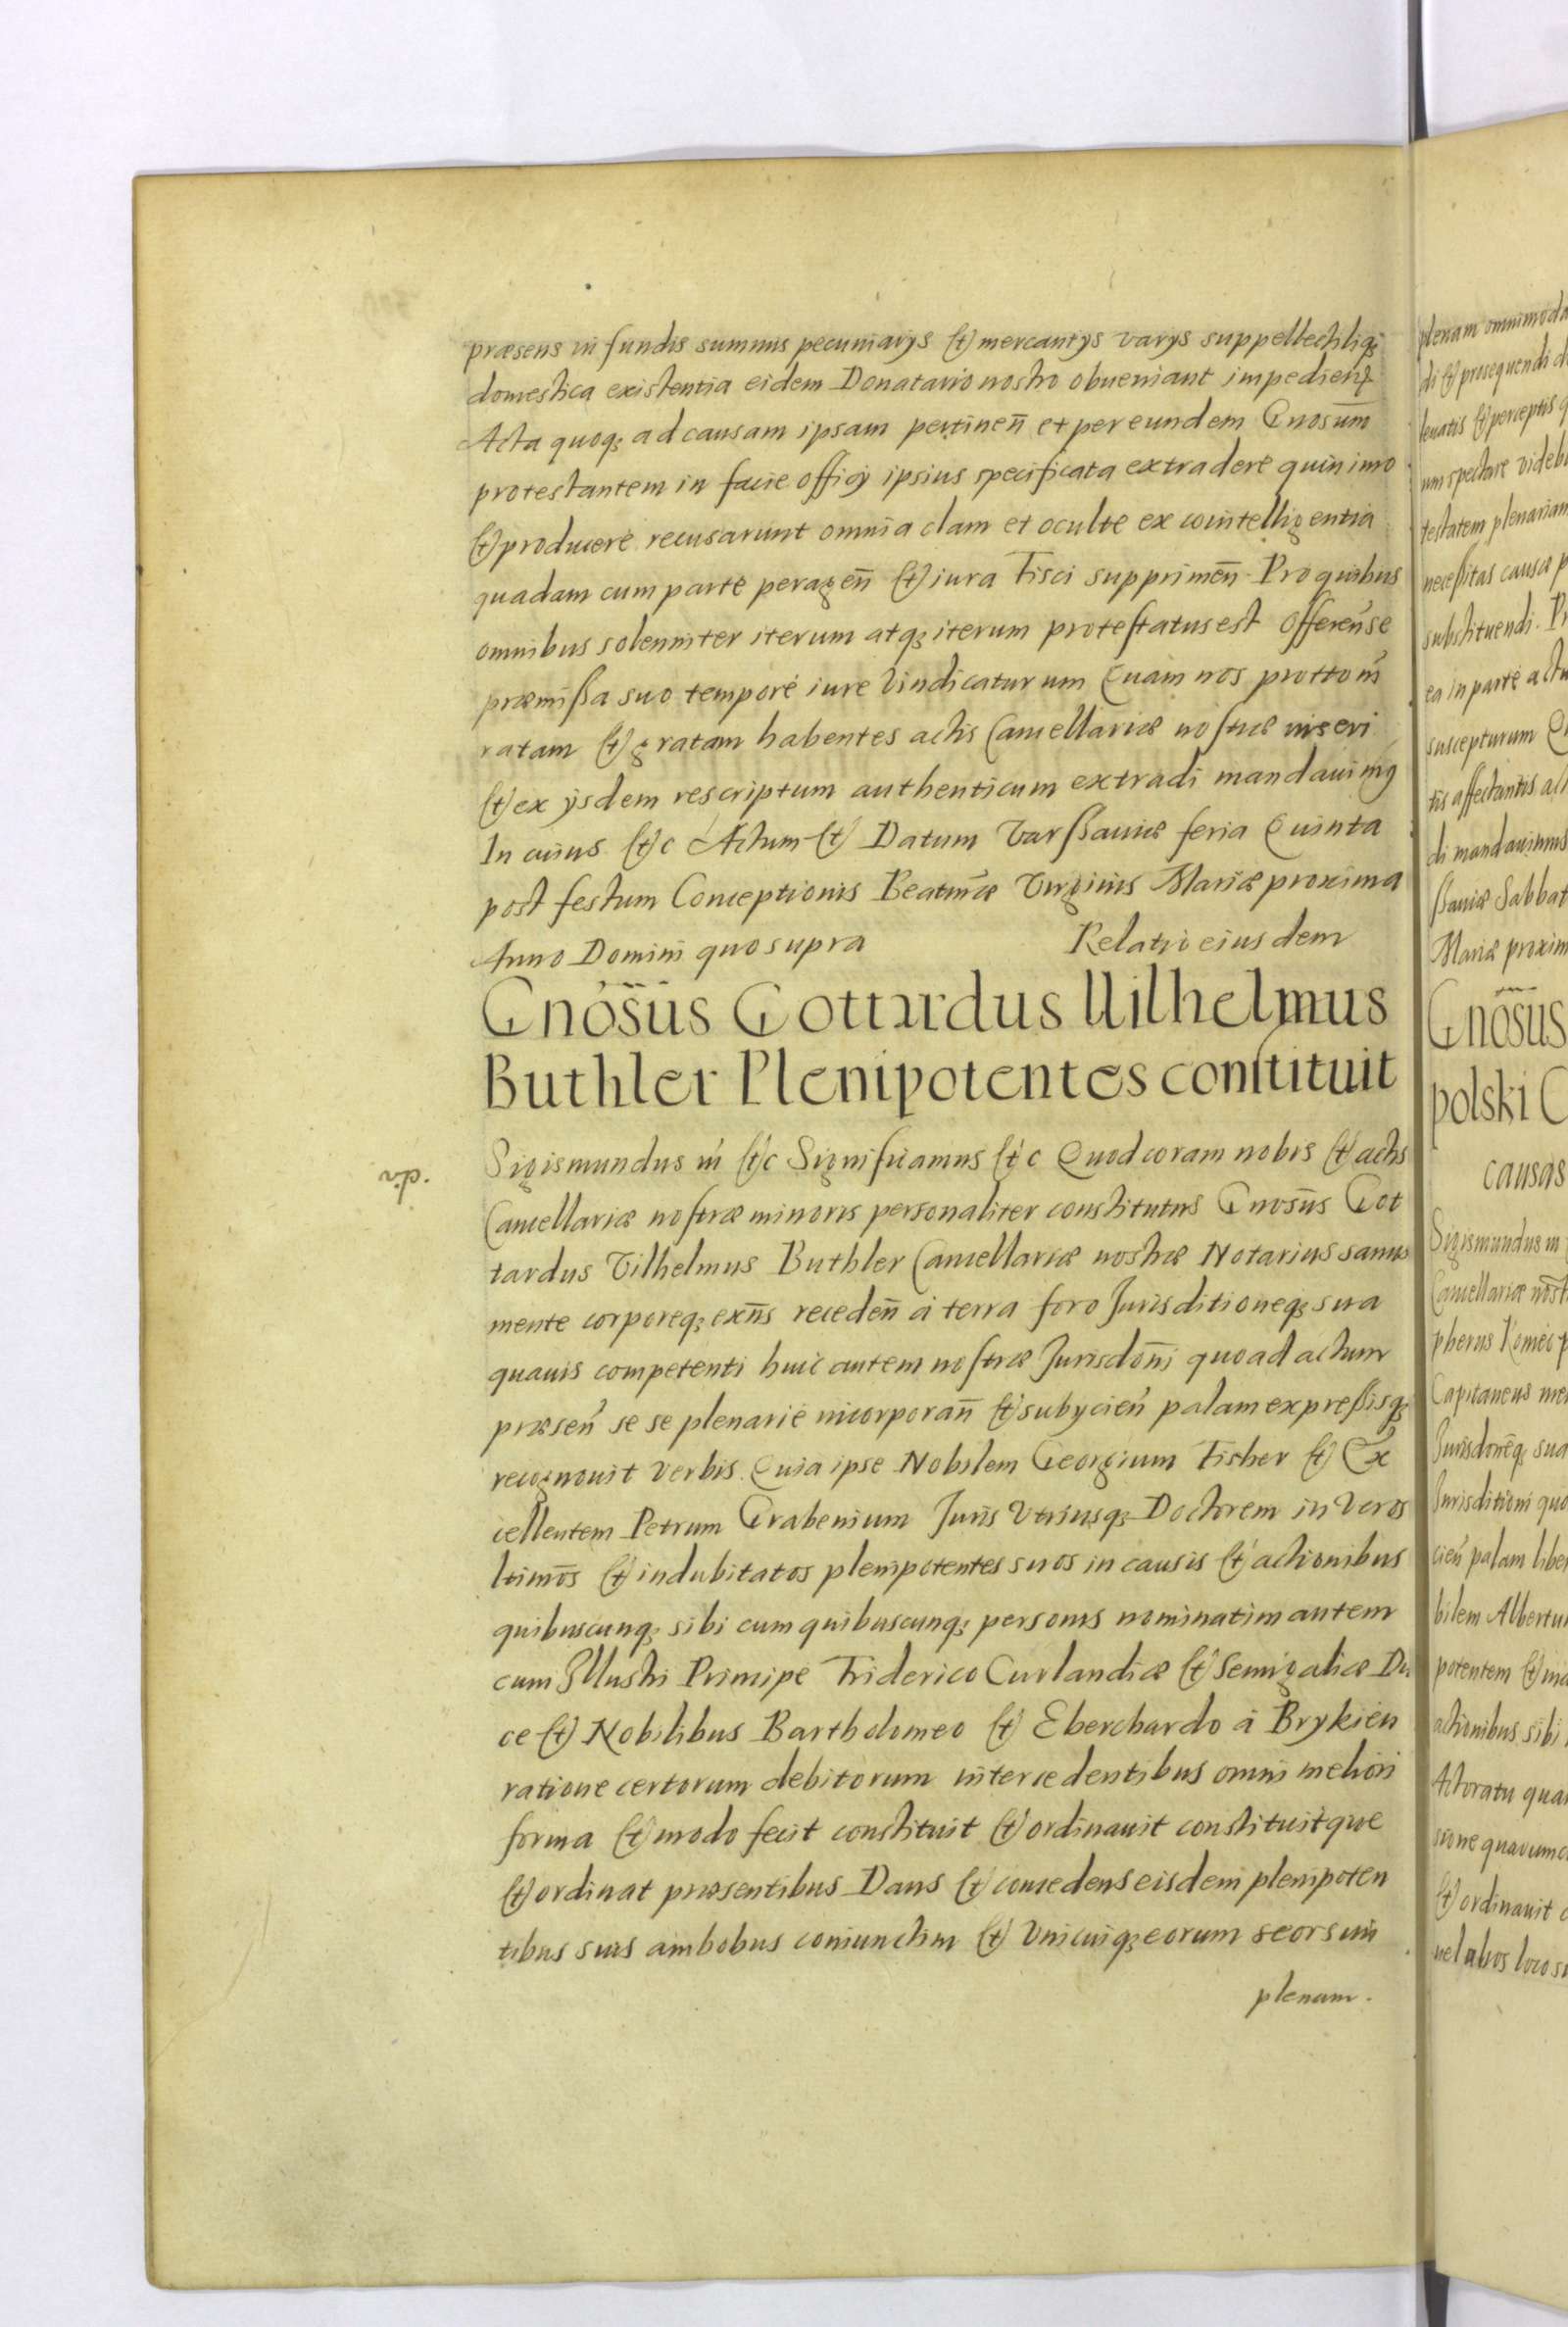 præsens in fundis summis pecuniarys et mercantys varys suppellectiliq;
domestica existentia eidem Donatario nostro obueniant impedienq;
Acta quoq; ad causam ipsam pertineñ et per eundem Gnosum̄
protestantem in facie officij ipsius specificata extradere quin imo
et producere recusarunt omnia clam et oculte ex cointelligentia
quadam cum parte perageñ et iura Fisci supprimeñ Pro quibus
omnibus solenniter iterum atq; iterum protestatus est Offereñ se
præmissa suo tempore iure Vindicaturum Quam nos prottom̄
ratam et gratam habentes actis Cancellariæ nostræ inseri
et ex ijsdem rescriptum authenticum extradi mandauimus
In cuius etc Actum et Datum Varssauiæ feria Quinta
post festum Conceptionis Beatmæ Virginis Mariæ proxima
Anno Domini quo supra Relatio eiusdem
Gnosus Gottardus Wilhelmus
Buthler Plenipotentes constituit
Sigismundus iii etc Significamus etc Quod coram nobis et actis
Cancellariæ nostræ minoris personaliter constitutus Gnosus Got
tardus Vilhelmus Buthler Cancellariæ nostræ Notarius sanus
mente corporeq; exn̄s recedeñ à terra foro Jurisditioneq; sua
quauis competenti huic autem nostræ Jurisdoñi quoad actum
præseñ se se plenarie incorporañ et subycień palam expressisq;
recognouit verbis Quia ipse Nobilem Georgium Fisher et Ex
cellentem Petrum Grabenium Juris Vtriusq; Doctorem in Veros
ltimos et indubitatos plenipotentes suos in causis et actionibus
quibuscunq; sibi cum quibuscunq; personis nominatim autem
cum Illustri Principe Friderico Curlandiæ et Semigaliæ Du
ce et Nobilibus Bartholomeo et Eberchardo à Brykien
ratione certorum debitorum intercedentibus omni meliori
forma et modo fecit constituit et ordinauit constituitque
et ordinat præsentibus Dans et concedens eisdem plenipoten
tibus suis ambobus coniunctim et Vnicuiq; eorum seorsim
plenam.
plenam omnimoda
di et prosequendi
leuatis et perceptis q
um spectare videb
testatem plenariam
necessitas causæ p
substituendi. Pr
ea in parte actu
suscepturum
tis affectantis
di mandauimus
ssauiæ Sabbat
Mariæ proxim
Gnosus
polski C
causas
Sigismundus iii
Cancellariæ nost
pherus Koniec p
Capitaneus
Jurisdoneq; sua
Jurisditioni quo
cień palam liber
bilem Albertum
potentem et ind
actionibus sibi
Actoratu qua
sione quarumc
et ordinauit c
uel alios loco su